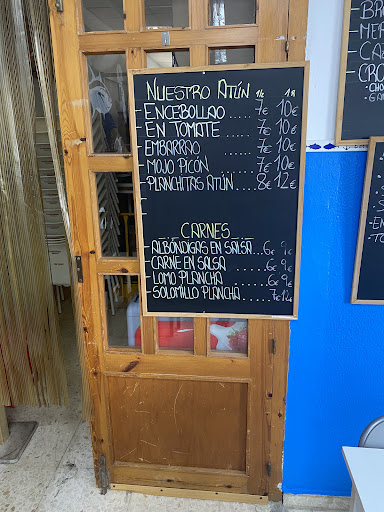 NUESTRO ATÚN 1/2 1R
ENCEBOLLAO ..... 7€ 10€
EN TOMATE ..... 7€ 10€
EMBARRAO ..... 7€ 10€
MOJO PICÓN ..... 7€ 10€
PLANCHITAS ATÚN .. 8€ 12€
CARNES
ALBÓNDIGAS EN SALSA..6€ 9€
CARNE EN SALSA ..... 6€ 9€
LOMO PLANCHA ..... 6€ 9€
SOLOMILLO PLANCHA ... 7€ 12€